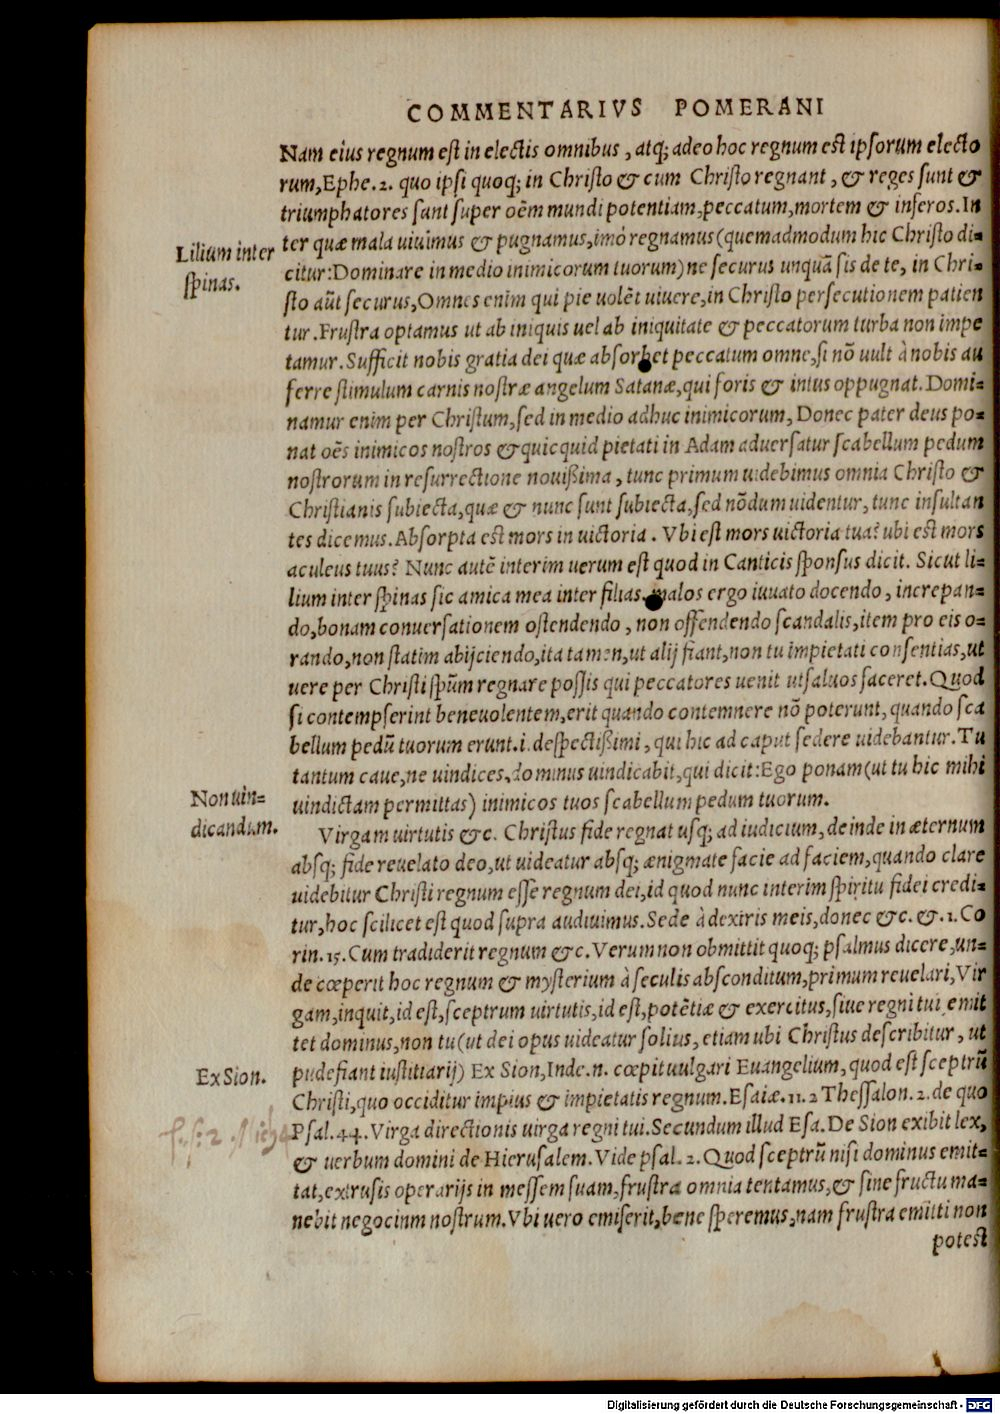 COMMENTARIVS POMERANI
Nam eius regnum est in electis omnibus, atq; adeo hoc regnum est ipsorum electo
rum, Ephe. 2. quo ipsi quoq; in Christo & cum Christo regnant, & reges sunt &
triumphatores sunt super oēm mundi potentiam, peccatum, mortem & inferos. In
Lilium inter
spinas.
ter quæ mala uiuimus & pugnamus, imò regnamus (quemadmodum hic Christo di=
citur: Dominare in medio inimicorum tuorum) ne securus unquā sis de te, in Chri=
sto aūt securus, Omnes enim qui pie uolēt uiuere, in Christo persecutionem patien
tur. Frustra optamus ut ab iniquis uel ab iniquitate & peccatorum turba non impe
tamur. Sufficit nobis gratia dei quæ absorbet peccatum omne, si nō uult à nobis au
ferre stimulum carnis nostræ angelum Satanæ, qui foris & intus oppugnat. Domi=
namur enim per Christum, sed in medio adhuc inimicorum, Donec pater deus po=
nat oēs inimicos nostros & quicquid pietati in Adam aduersatur scabellum pedum
nostrorum in resurrectione nouißima, tunc primum uidebimus omnia Christo &
Christianis subiecta, quæ & nunc sunt subiecta, sed nōdum uidentur, tunc insultan
tes dicemus. Absorpta est mors in uictoria. Vbi est mors uictoria tua? ubi est mors
aculeus tuus? Nunc autē interim uerum est quod in Canticis sponsus dicit. Sicut li=
lium inter spinas sic amica mea inter filias. malos ergo iuuato docendo, increpan=
do, bonam conuersationem ostendendo, non offendendo scandalis, item pro eis o=
rando, non statim abijciendo, ita tamen, ut alij fiant, non tu impietati consentias, ut
uere per Christi spūm regnare possis qui peccatores uenit ut saluos faceret. Quod
si contempserint beneuolentem, erit quando contemnere nō poterunt, quando sca
bellum pedū tuorum erunt. i. despectißimi, qui hic ad caput sedere uidebantur. Tu
tantum caue, ne uindices, dominus uindicabit, qui dicit: Ego ponam (ut tu hic mihi
Non uin=
dicandum.
uindictam permittas) inimicos tuos scabellum pedum tuorum.
Virgam uirtutis &c. Christus fide regnat usq; ad iudicium, deinde in æternum
absq; fide reuelato deo, ut uideatur absq; ænigmate facie ad faciem, quando clare
uidebitur Christi regnum esse regnum dei, id quod nunc interim spiritu fidei credi=
tur, hoc scilicet est quod supra audiuimus. Sede à dextris meis, donec &c. &. 1. Co
rin. 15. Cum tradiderit regnum &c. Verum non obmittit quoq; psalmus dicere, un=
de cœperit hoc regnum & mysterium à seculis absconditum, primum reuelari, Vir
gam, inquit, id est, sceptrum uirtutis, id est, potētiæ & exercitus, siue regni tui emit
tet dominus, non tu (ut dei opus uideatur solius, etiam ubi Christus describitur, ut
Ex Sion.
pudefiant iustitiarij) Ex Sion, Inde. n. cœpit uulgari Euangelium, quod est sceptrū
Christi, quo occiditur impius & impietatis regnum. Esaiæ. 11. 2 Thessalon. 2. de quo
Psal. 44. Virga directionis uirga regni tui. Secundum illud Esa. De Sion exibit lex,
& uerbum domini de Hierusalem. Vide psal. 2. Quod sceptrū nisi dominus emit=
tat, extrusis operarijs in messem suam, frustra omnia tentamus, & sine fructu ma=
nebit negocium nostrum. Vbi uero emiserit, bene speremus, nam frustra emitti non
potest
Digitalisierung gefördert durch die Deutsche Forschungsgemeinschaft - DFG